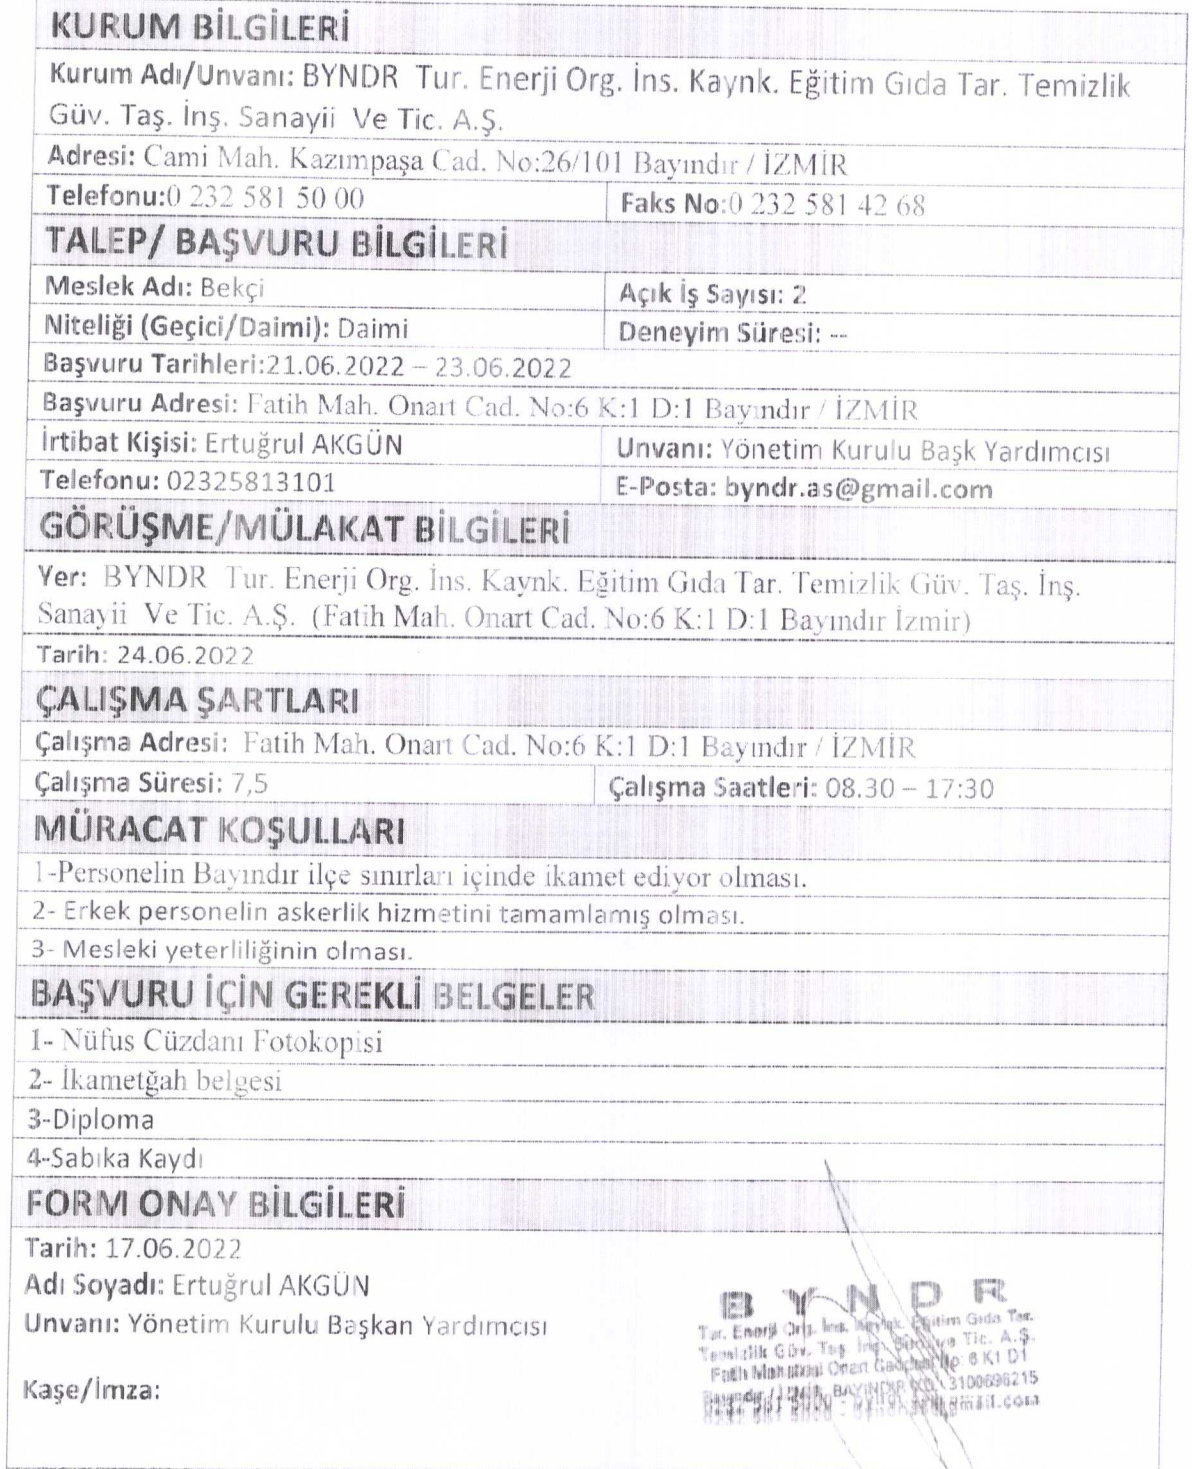 KURUM BİLGİLERİ
Kurum Adı/Unvanı: BYNDR Tur. Enerji Org. İns. Kaynk. Eğitim Gıda Tar. Temizlik
Güv. Taş. İnş. Sanayii Ve Tic. A.Ş.
Adresi: Cami Mah. Kazımpaşa Cad. No:26/101 Bayındır / İZMİR
Telefonu:0 232 581 50 00
Faks No:0 232 581 42 68
TALEP/ BAŞVURU BİLGİLERİ
Meslek Adı: Bekçi
Açık İş Sayısı: 2
Niteliği (Geçici/Daimi): Daimi
Deneyim Süresi: --
Başvuru Tarihleri:21.06.2022 – 23.06.2022
Başvuru Adresi: Fatih Mah. Onart Cad. No:6 K:1 D:1 Bayındır / İZMİR
İrtibat Kişisi: Ertuğrul AKGÜN
Unvanı: Yönetim Kurulu Başk Yardımcısı
Telefonu: 02325813101
E-Posta: byndr.as@gmail.com
GÖRÜŞME/MÜLAKAT BİLGİLERİ
Yer: BYNDR Tur. Enerji Org. İns. Kaynk. Eğitim Gıda Tar. Temizlik Güv. Taş. İnş.
Sanayii Ve Tic. A.Ş. (Fatih Mah. Onart Cad. No:6 K:1 D:1 Bayındır İzmir)
Tarih: 24.06.2022
ÇALIŞMA ŞARTLARI
Çalışma Adresi: Fatih Mah. Onart Cad. No:6 K:1 D:1 Bayındır / İZMİR
Çalışma Süresi: 7,5
Çalışma Saatleri: 08.30 – 17:30
MÜRACAT KOŞULLARI
1-Personelin Bayındır ilçe sınırları içinde ikamet ediyor olması.
2- Erkek personelin askerlik hizmetini tamamlamış olması.
3- Mesleki yeterliliğinin olması.
BAŞVURU İÇİN GEREKLİ BELGELER
1- Nüfus Cüzdanı Fotokopisi
2- İkametğah belgesi
3-Diploma
4-Sabıka Kaydı
FORM ONAY BİLGİLERİ
Tarih: 17.06.2022
Adı Soyadı: Ertuğrul AKGÜN
Unvanı: Yönetim Kurulu Başkan Yardımcısı
Kaşe/İmza:
BYNDR
Tur. Enerji Org. İns. Eğitim Gıda Tar.
Temizlik Güv. Taş. Tic. A.Ş.
Fatih Mahallesi Onart 6 K1 D1
BAYINDIR 3100696215